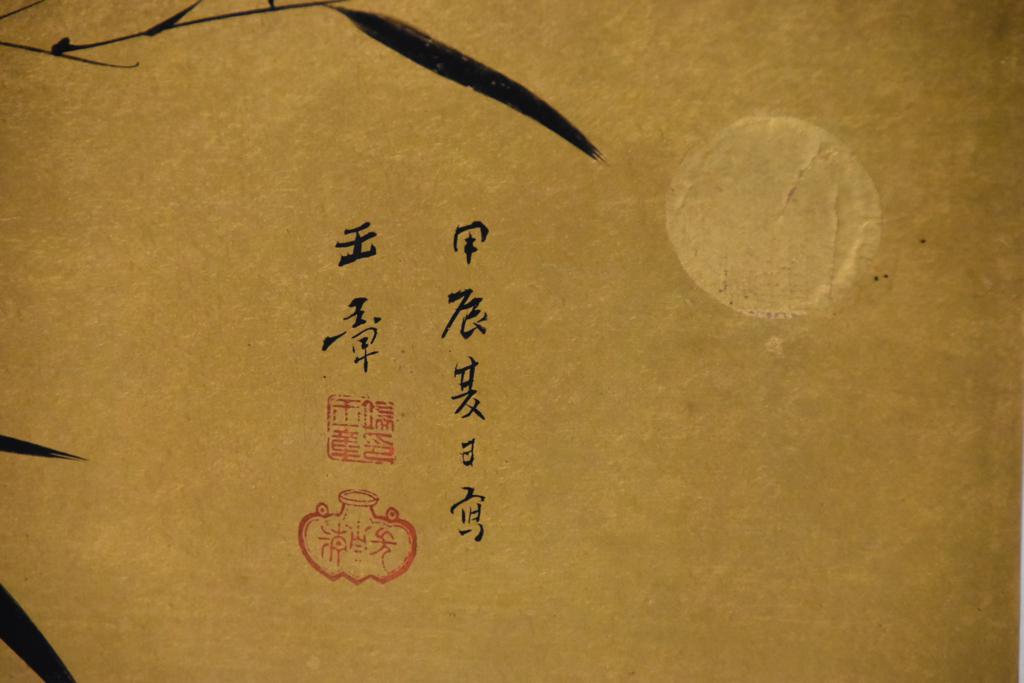 甲辰夏日寫
玉章